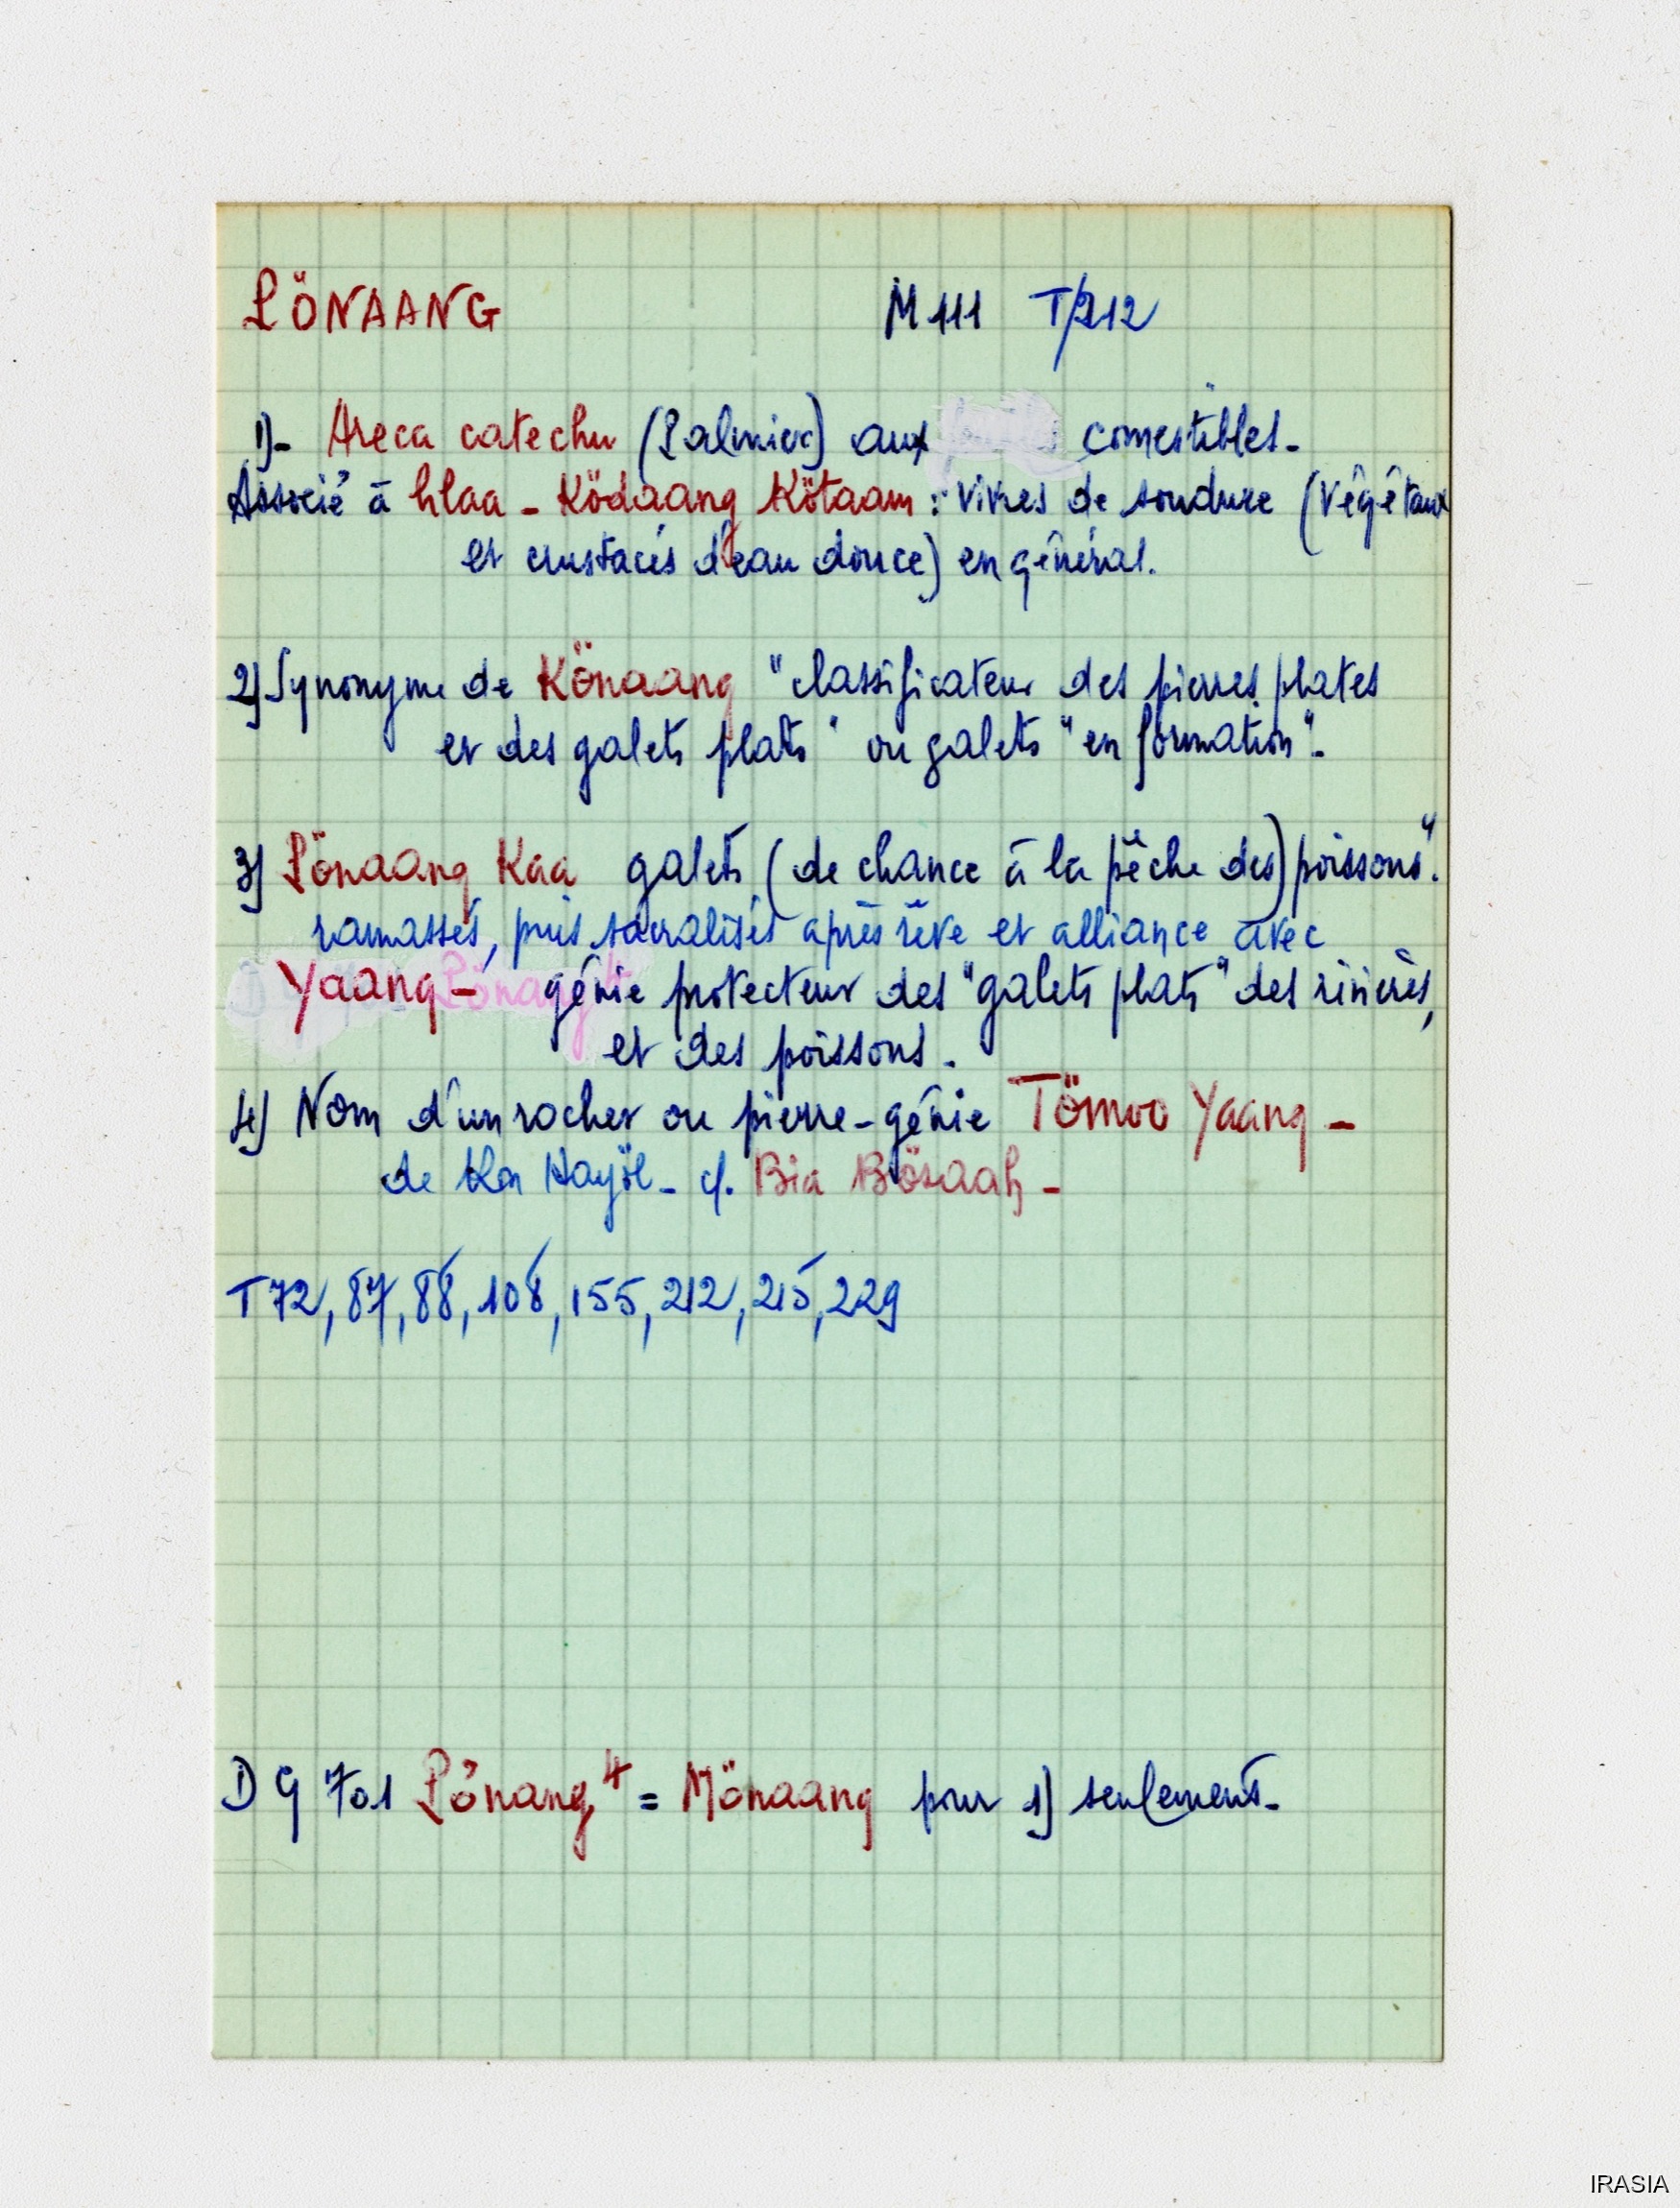 LÖNAANG M 111 T/212
1)- Areca catechu (Palmier) aux comestibles-
Associé à hlaa - Ködaang Kötaam : vivres de soudure (Végétaux
et crustacés d'eau douce) en général.
2) Synonyme de Könaang "classificateur des pierres plates
et des galets plats" ou galets "en formation"-
3) Lönaang Kaa galets (de chance à la pêche des) poissons".
ramassés, puis sacralisés après rêve et alliance avec
Yaang - génie protecteur des "galets plats" des rivières,
et des poissons.
4) Nom d'un rocher ou pierre-génie Tömoo Yaang -
de Hayöl - cf. Bia Bösaah -
T 72, 87, 88, 108, 155, 212, 215, 229
DG 701 Lönang 4 = Mönaang pour 1) seulement-
IRASIA